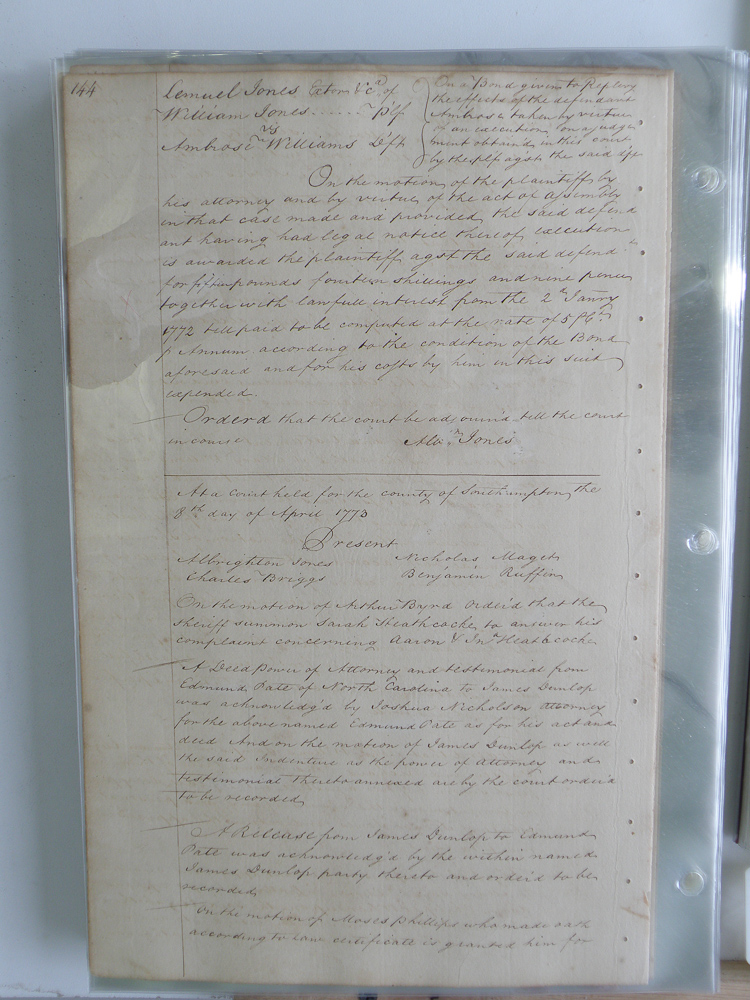 144
Lemuel Jones Extor &c.a of
William Jones ..... plf
vs
Ambrose Williams Deft
On a Bond given to Replevy
the effects of the defendant
Ambrose taken by virtue
of an execution on a judge
ment obtained in this court
by the plf agst the said deft
On the motion of the plaintiff by
his attorney and by virtue of the act of assembly
in that case made and provided, the said defend
ant having had legal notice thereof execution
is awarded the plaintiff agst the said defend.t
for pounds fourteen shillings and nine pence
together with lawfull interest from the 2.d Janry
1772 till paid to be computed at the rate of 5 P C.t
p Annum according to the condition of the Bond
aforesaid and for his costs by him in this suit
expended.
Orderd that the court be adjournd till the court
in course
Alb.n Jones
At a Court held for the county of Southampton the
8th day of April 1773
Present
Albrighton Jones Nicholas Maget
Charles Briggs Benjamin Ruffin
On the motion of Arthur Byrd Orderd that the
Sheriff summon Sarah Heathcocke to answer his
complaint concerning Aaron & Jn.o Heathcocke
A Deed Power of Attorney and testimonial from
Edmund Pate of North Carolina to James Dunlop
was acknowledg'd by Joshua Nicholson attorney
for the above named Edmund Pate as for his act and
deed And on the motion of James Dunlop as well
the said Indenture as the power of Attorney and
testimonial thereto annexed are by the court orderd
to be recorded
A Release from James Dunlop to Edmund
Pate was acknowledg'd by the within named
James Dunlop party thereto and orderd to be
recorded
On the motion of Moses Phillips who made oath
according to Law certificate is granted him for